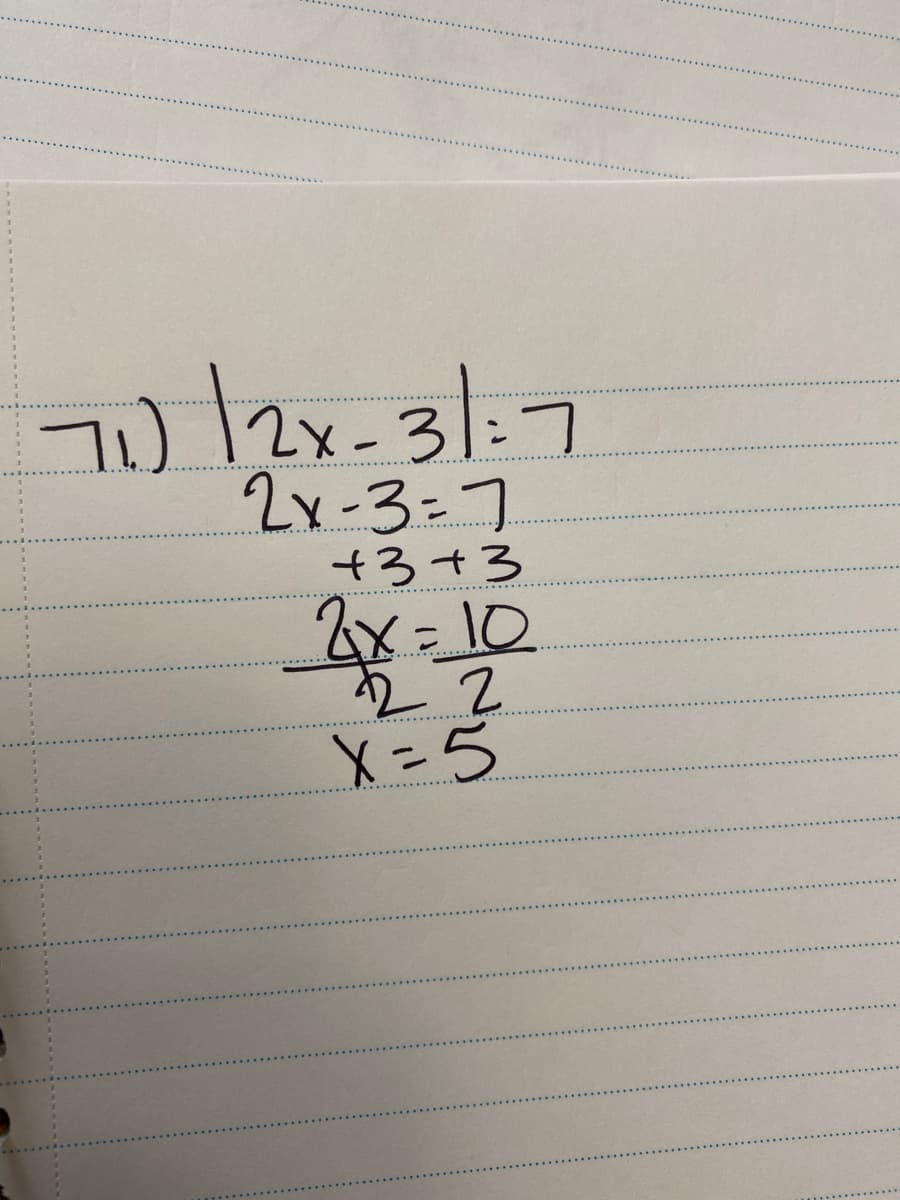 71.) |2x-3|=7
2x-3=7
+3 +3
2x=10
2 2
x=5